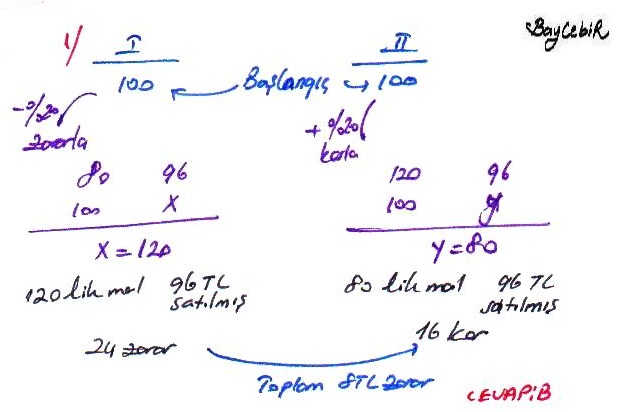 BayCebiR
1/ I II
100 Başlangıç 100
-%20 zararla
+%20 karla
80 96
100 X
X = 120
120 96
100 y
Y = 80
120 lik mal 96 TL satılmış
80 lik mal 96 TL satılmış
24 zarar
16 kar
Toplam 8TL zarar
CEVAP:B